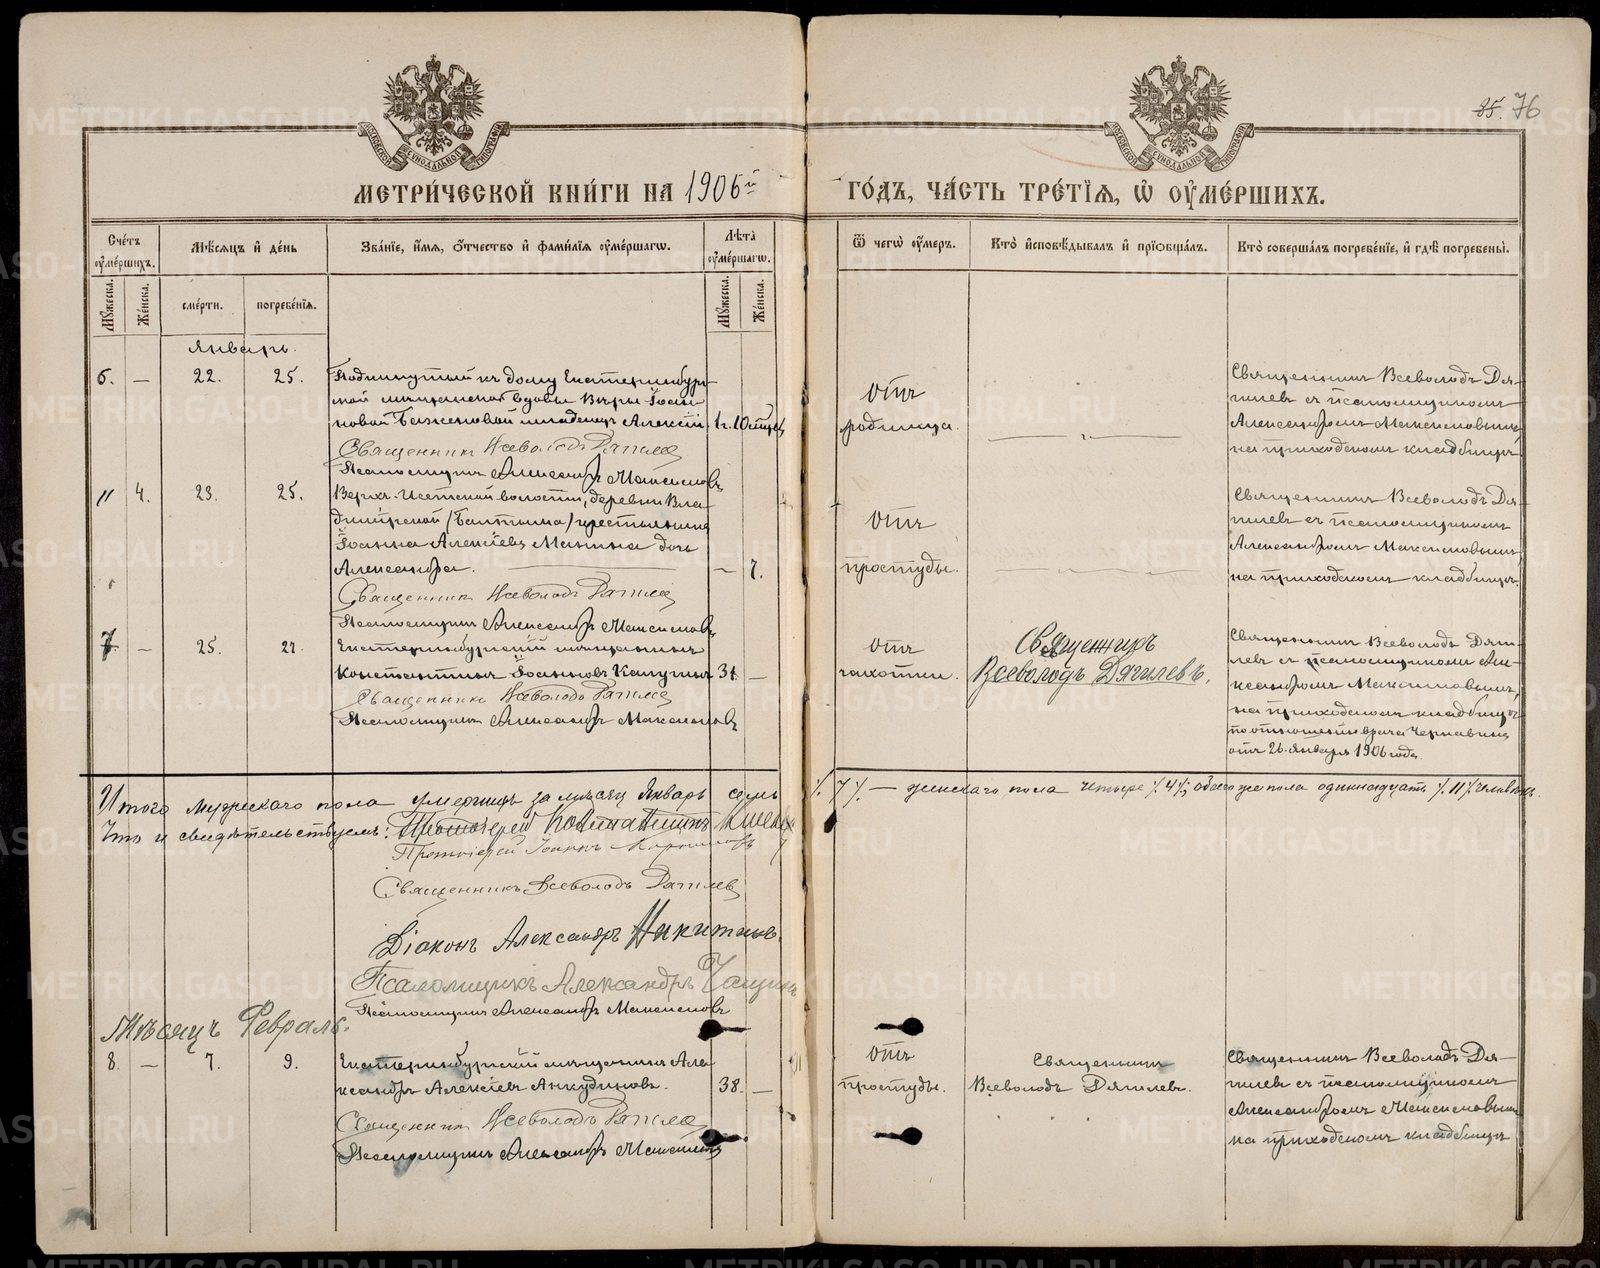 85. 76
МЕТРИЧЕСКОЙ КНИГИ НА 1906й ГОДЪ, ЧАСТЬ ТРЕТІЯ, Ѡ ОУМЕРШИХЪ.
Счетъ оумершихъ.
Мѣсяцъ и день
Званіе, имя, отчество и фамилія оумершагѡ.
Лѣта оумершагѡ.
Ѿ чегѡ оумеръ.
Кто исповѣдывалъ и пріобщалъ.
Кто совершалъ погребеніе, и гдѣ погребены.
Мужеска.
Женска.
смерти.
погребенія.
Мужеска.
Женска.
Январь.
6. — 22. 25.
Подкинутый къ дому Екатеринбург-
ской мѣщанской вдовы Вѣры Іоан-
новой Баженовой младенец Алексій. 1 г. 10 мѣсяц
Священник Всеволодъ Дягилев
Псаломщикъ Александръ Максимовъ
отъ
родимца.
Священникъ Всеволодъ Дя-
гилевъ съ псаломщикомъ
Александромъ Максимовымъ,
на приходскомъ кладбищѣ.
" 4. 23. 25.
Верхъ-Исетской волости, деревни Вла-
димірской /Балтыма/ крестьянина
Іоанна Алексіева Манина дочь
Александра. — 7.
Священник Всеволодъ Дягилев
Псаломщикъ Александръ Максимовъ
отъ
простуды.
Священникъ Всеволодъ Дя-
гилевъ съ псаломщикомъ
Александромъ Максимовымъ,
на приходскомъ кладбищѣ.
7 — 25. 27.
Екатеринбургскій мѣщанинъ
Константинъ Іоанновъ Калугинъ 31 —
Священник Всеволодъ Дягилев
Псаломщикъ Александръ Максимовъ
отъ
чахотки.
Священникъ
Всеволодъ Дягилевъ.
Священникъ Всеволодъ Дяги-
левъ съ псаломщикомъ Але-
ксандромъ Максимовымъ,
на приходскомъ кладбищѣ
по отношенію врача Чернавина
отъ 26 января 1906 года.
Итого мужескаго пола умершихъ за мѣсяц Январь семь /. 7 /. — женскаго пола четыре /. 4 /.; обоего же пола одиннадцать /. 11 /. человѣкъ.
Что и свидѣтельствуемъ: Протоіерей
Протоіерей Іоаннъ
Священникъ Всеволодъ Дягилев
Діаконъ Александръ Никитинъ.
Псаломщикъ Александръ
Псаломщикъ Александръ Максимовъ
Мѣсяцъ Февраль.
8. — 7. 9.
Екатеринбургскій мѣщанинъ Але-
ксандръ Алексіевъ Анкудиновъ. 38. —
Священник Всеволодъ Дягилев
Псаломщикъ Александръ Максимовъ
отъ
простуды.
Священникъ
Всеволодъ Дягилевъ.
Священникъ Всеволодъ Дя-
гилевъ съ псаломщикомъ
Александромъ Максимовымъ
на приходскомъ кладбищѣ
METRIKI.GASO-URAL.RU